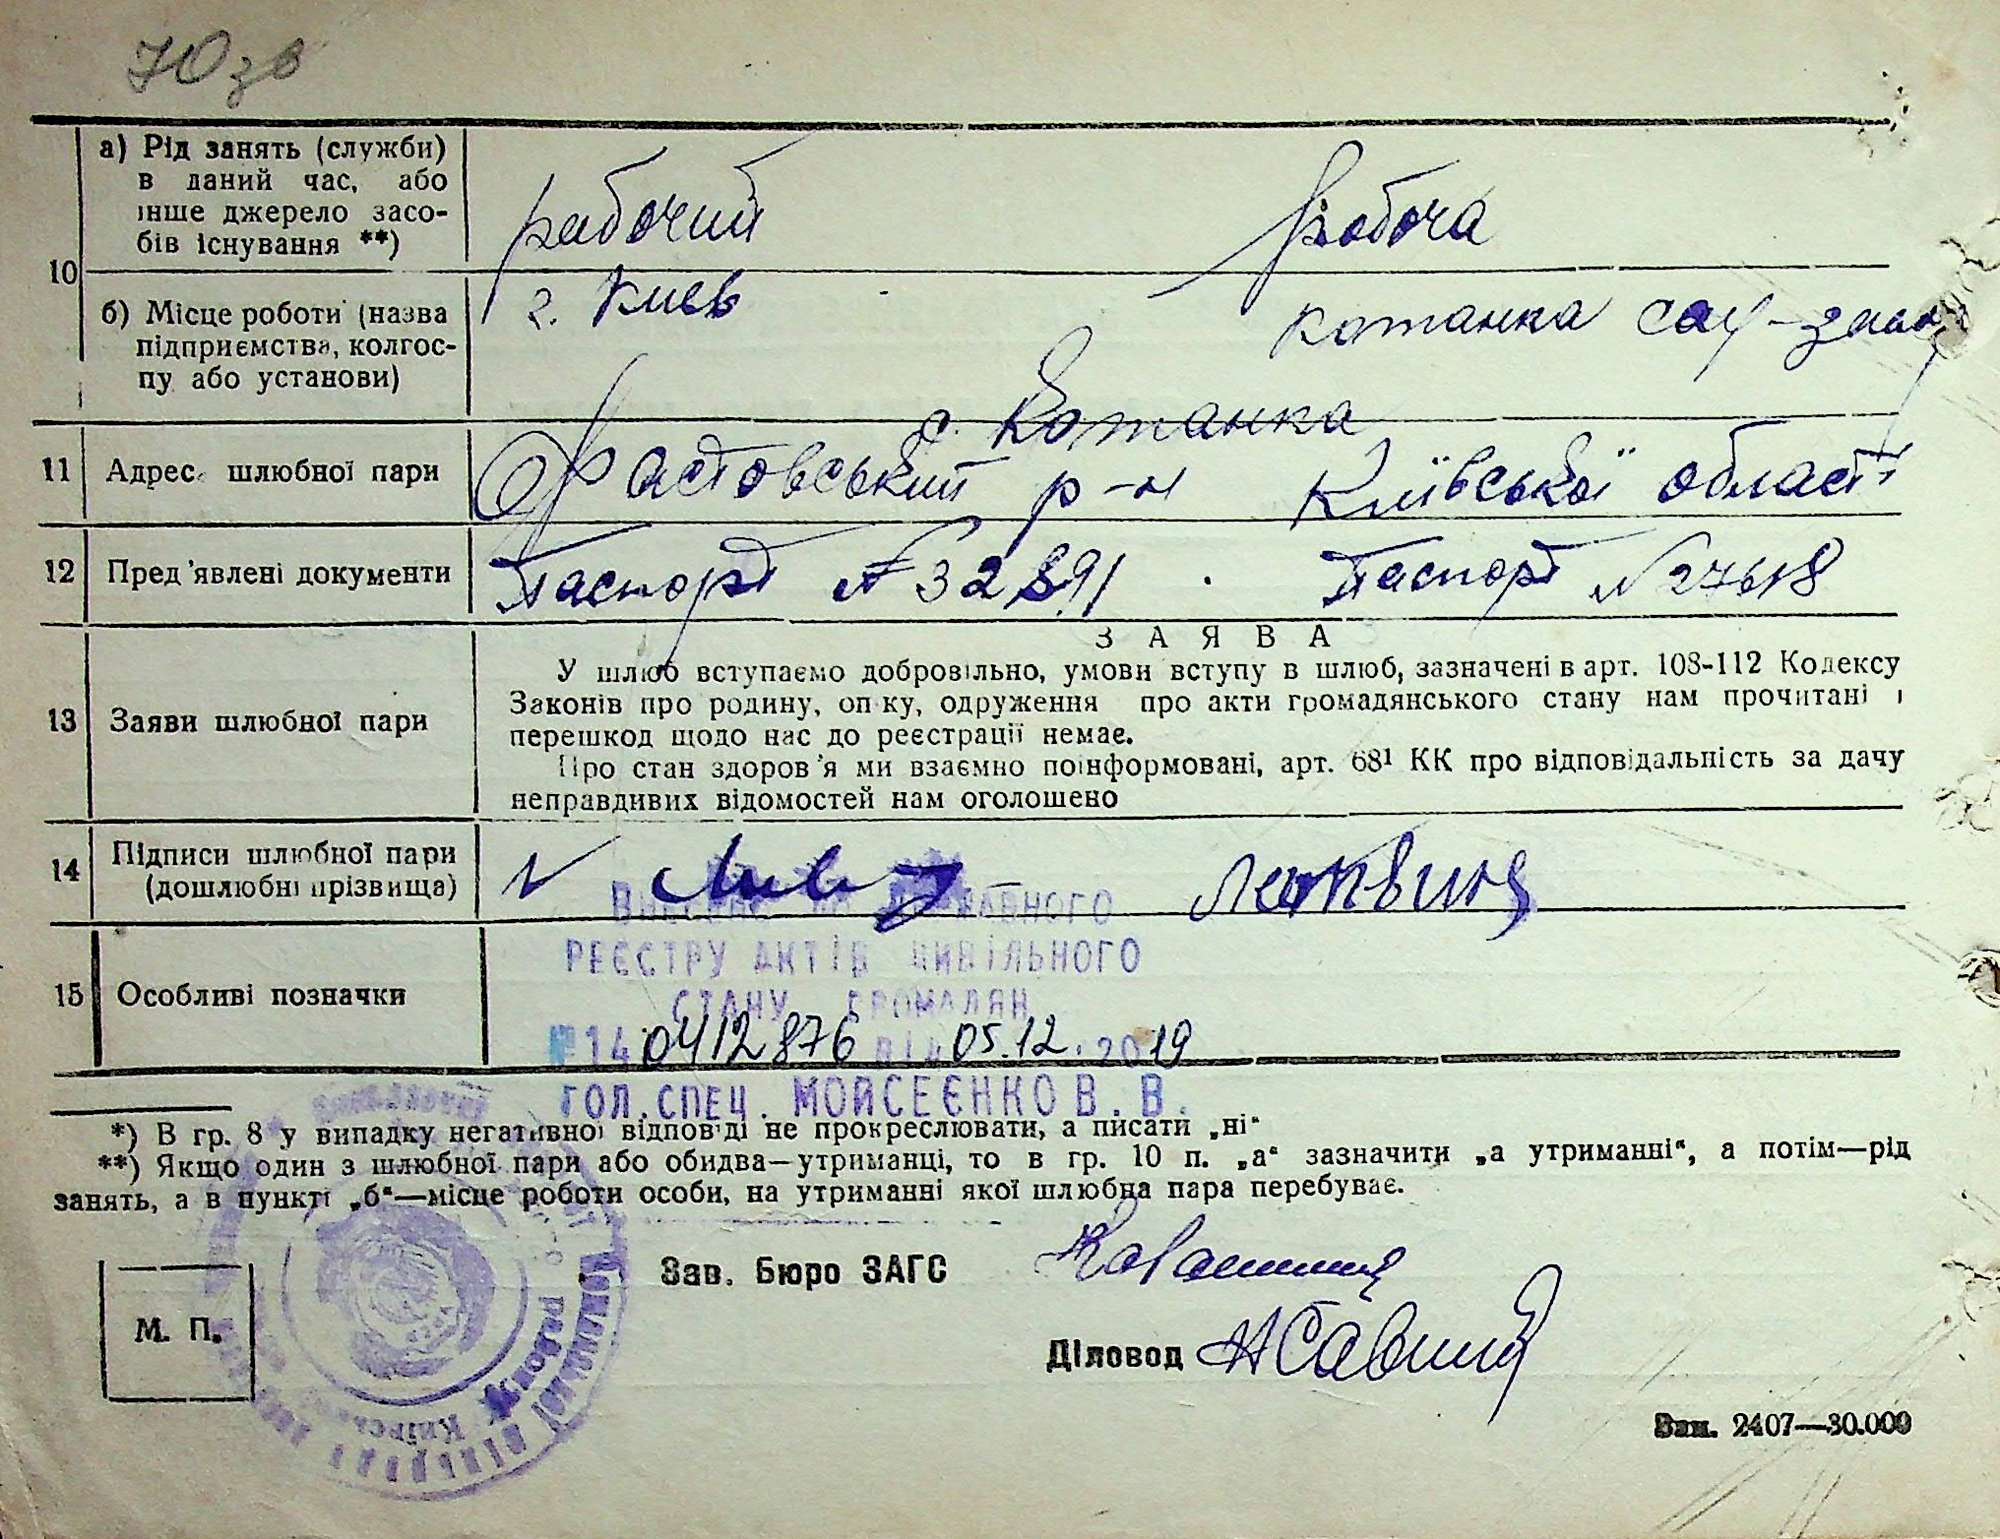 Юзв
10
а) Рід занять (служби)
в даний час, або
інше джерело засо-
бів існування **)
рабочий
робоча
б) Місце роботи (назва
підприємства, колгос-
пу або установи)
г. Киев
котанка
11
Адрес шлюбної пари
с. Котанка
Фастовський р-н Київської області
12
Пред'явлені документи
Паспорт № 32891
Паспорт № 27618
13
Заяви шлюбної пари
ЗАЯВА
У шлюб вступаємо добровільно, умови вступу в шлюб, зазначені в арт. 108-112 Кодексу
Законів про родину, опіку, одруження про акти громадянського стану нам прочитані і
перешкод щодо нас до реєстрації немає.
Про стан здоров'я ми взаємно поінформовані, арт. 68¹ КК про відповідальність за дачу
неправдивих відомостей нам оголошено
14
Підписи шлюбної пари
(дошлюбні прізвища)
15
Особливі позначки
Внесено до Державного
РЕЄСТРУ АКТІВ ЦИВІЛЬНОГО
СТАНУ ГРОМАДЯН
№ 140412876 від 05.12.2019
ГОЛ. СПЕЦ. МОЙСЕЄНКО В. В.
*) В гр. 8 у випадку негативної відповіді не прокреслювати, а писати „ні“
**) Якщо один з шлюбної пари або обидва—утриманці, то в гр. 10 п. „а“ зазначити „а утриманні“, а потім—рід
занять, а в пункті „б“—місце роботи особи, на утриманні якої шлюбна пара перебуває.
М. П.
Зав. Бюро ЗАГС
Діловод
Зам. 2407—30.000